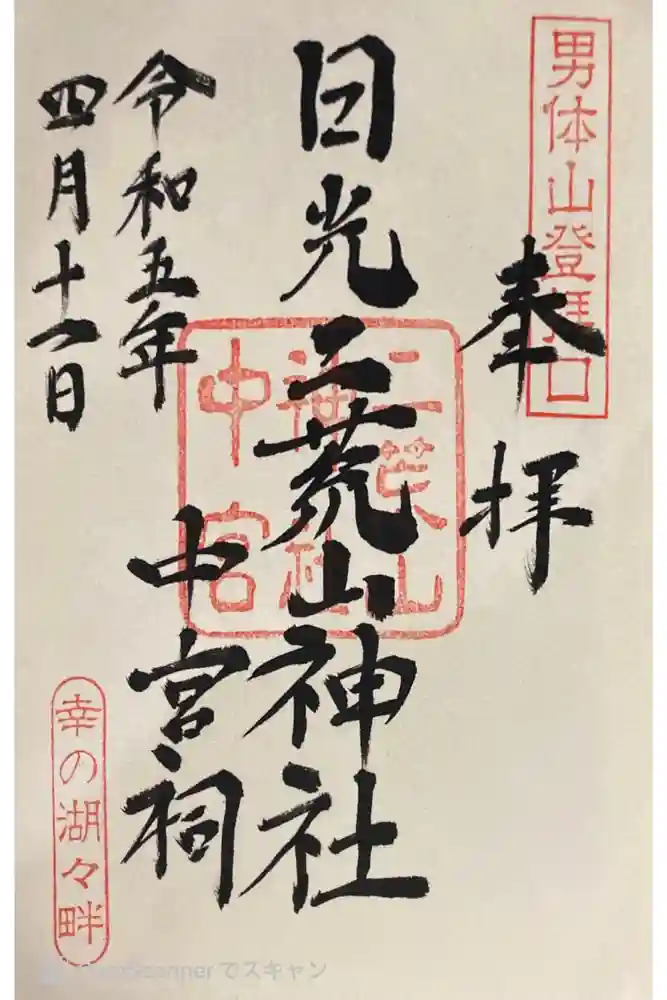 男体山登拝口
奉拝
日光二荒山神社
中宮祠
二荒山
神社
中宮
令和五年
四月十一日
幸の湖々畔
CamScannerでスキャン